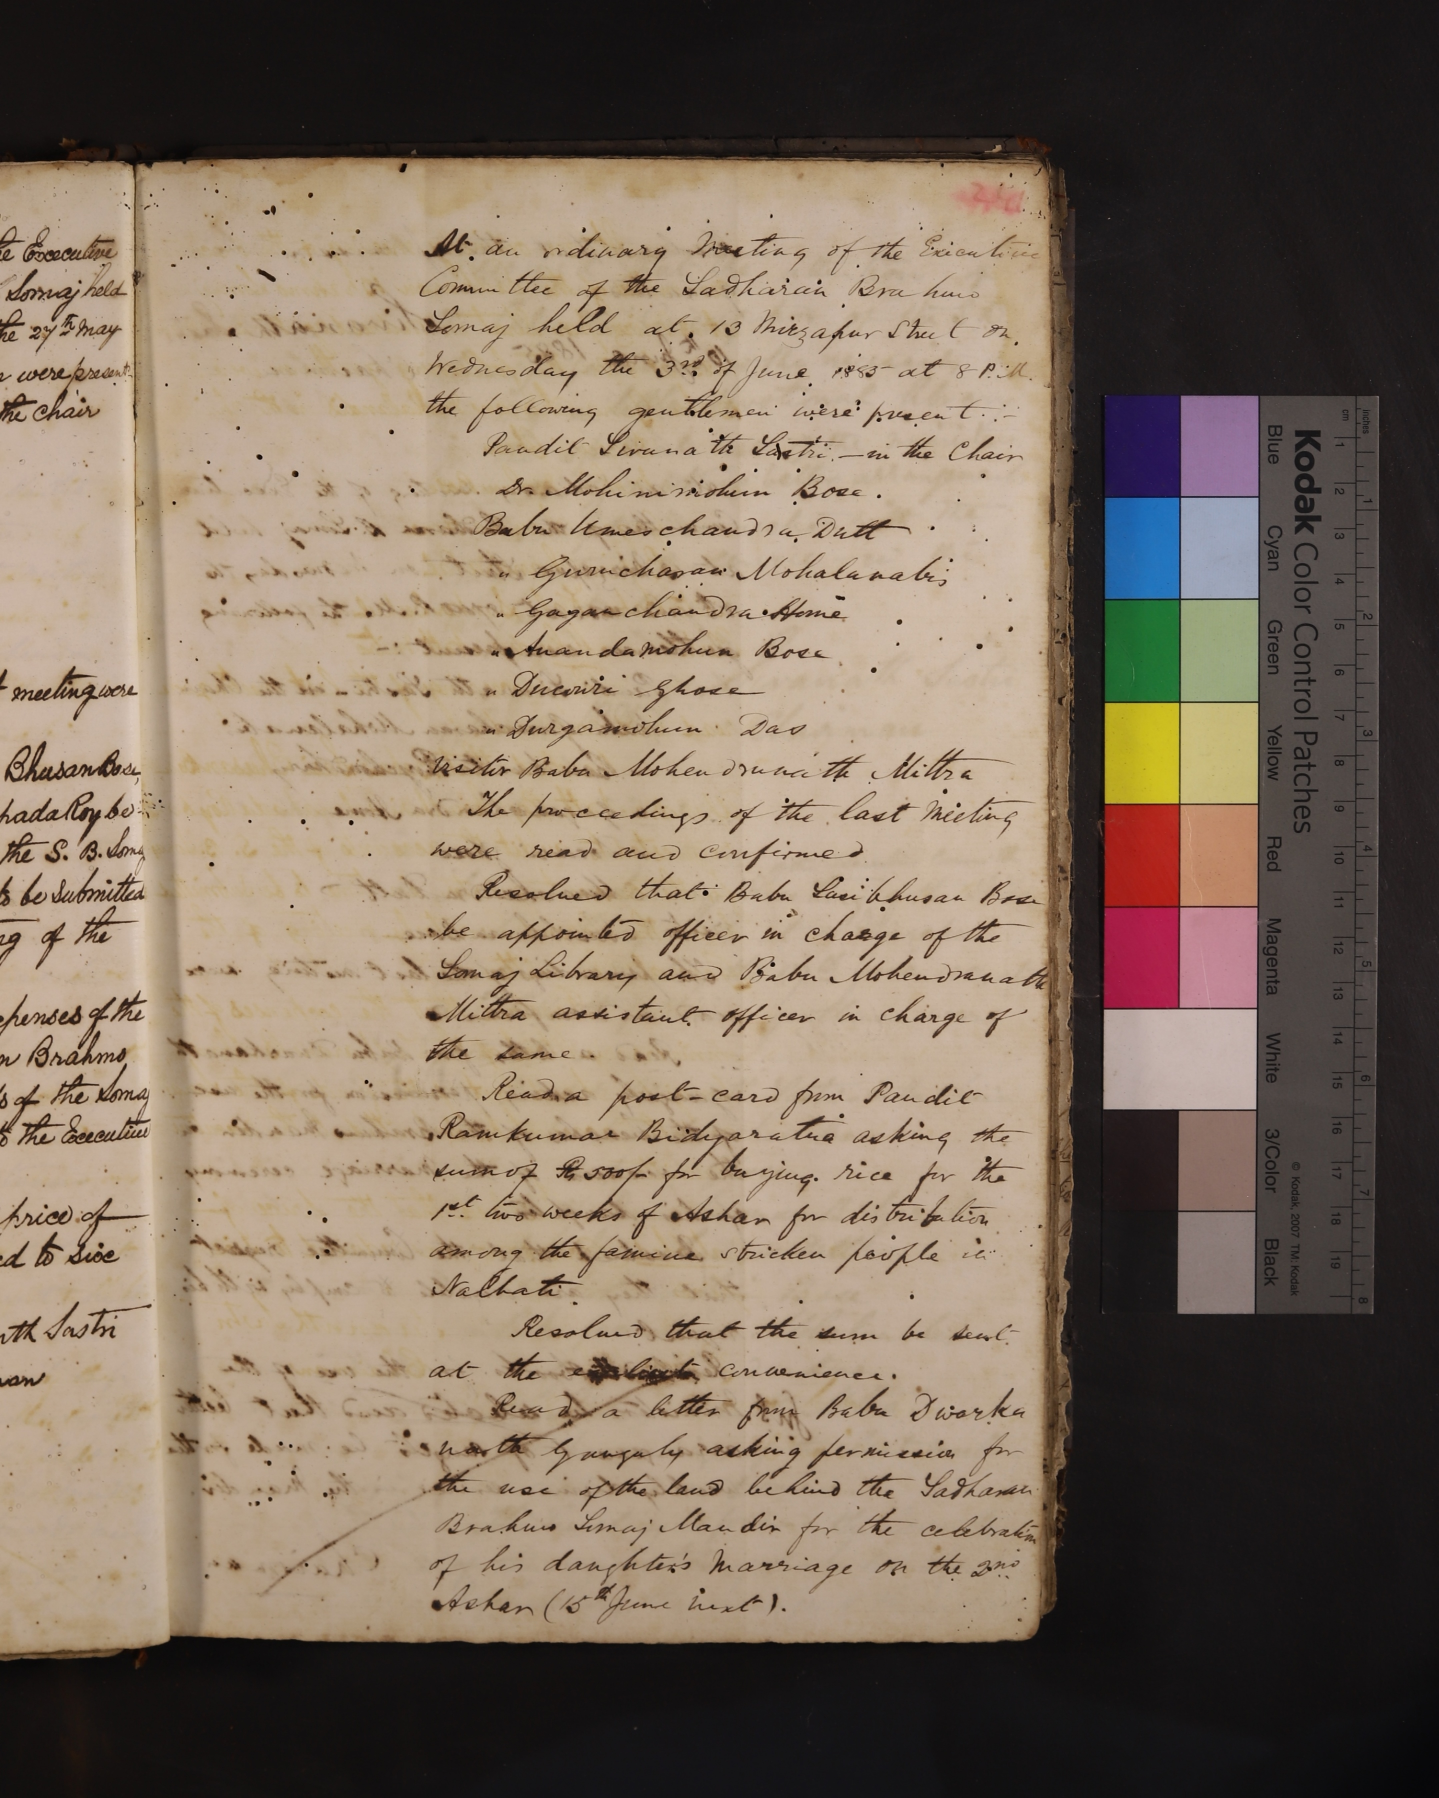 he Executive
Somaj held
the 27th May
n were present:-
the chair
t meeting were
Bhusan Bose,
pada Roy be
the S. B. Somaj
to be submitted
ng of the
epenses of the
n Brahmo
's of the Somaj
to the Executive
price of
ed to sixe
ath Sastri
man
At an ordinary Meeting of the Executive
Committee of the Sadharan Brahmo
Somaj held at 13 Mirzapur Street on
Wednesday the 3rd of June 1885 at 8 P.M.
the following gentlemen were present :-
Pandit Sivanath Sastri - in the Chair
Dr. Mohinimohun Bose.
Babu Umeschandra Datt
" Gurucharan Mohalanabis
" Gaganchandra Home
" Anandamohun Bose
" Ducouri Ghose
" Durgamohun Das
Visitor Babu Mohendranath Mittra
The proceedings of the last Meeting
were read and confirmed
Resolved that Babu Sasibhusan Bose
be appointed officer in charge of the
Somaj Library and Babu Mohendranath
Mittra assistant officer in charge of
the same.
Read a post-card from Pandit
Ramkumar Bidyaratna asking the
sum of Rs 500/- for buying rice for the
1st two weeks of Ashar for distribution
among the famine stricken people in
Nalhati.
Resolved that the sum be sent
at the earliest convenience.
Read a letter from Babu Dwarka
nath Ganguly asking permission for
the use of the land behind the Sadharan
Brahmo Somaj Mandir for the celebration
of his daughter's marriage on the 2nd
Ashar (15th June next).
Kodak Color Control Patches
Blue Cyan Green Yellow Red Magenta White 3/Color Black
© Kodak, 2007 TM: Kodak
cm 1 2 3 4 5 6 7 8 9 10 11 12 13 14 15 16 17 18 19
inches 1 2 3 4 5 6 7 8